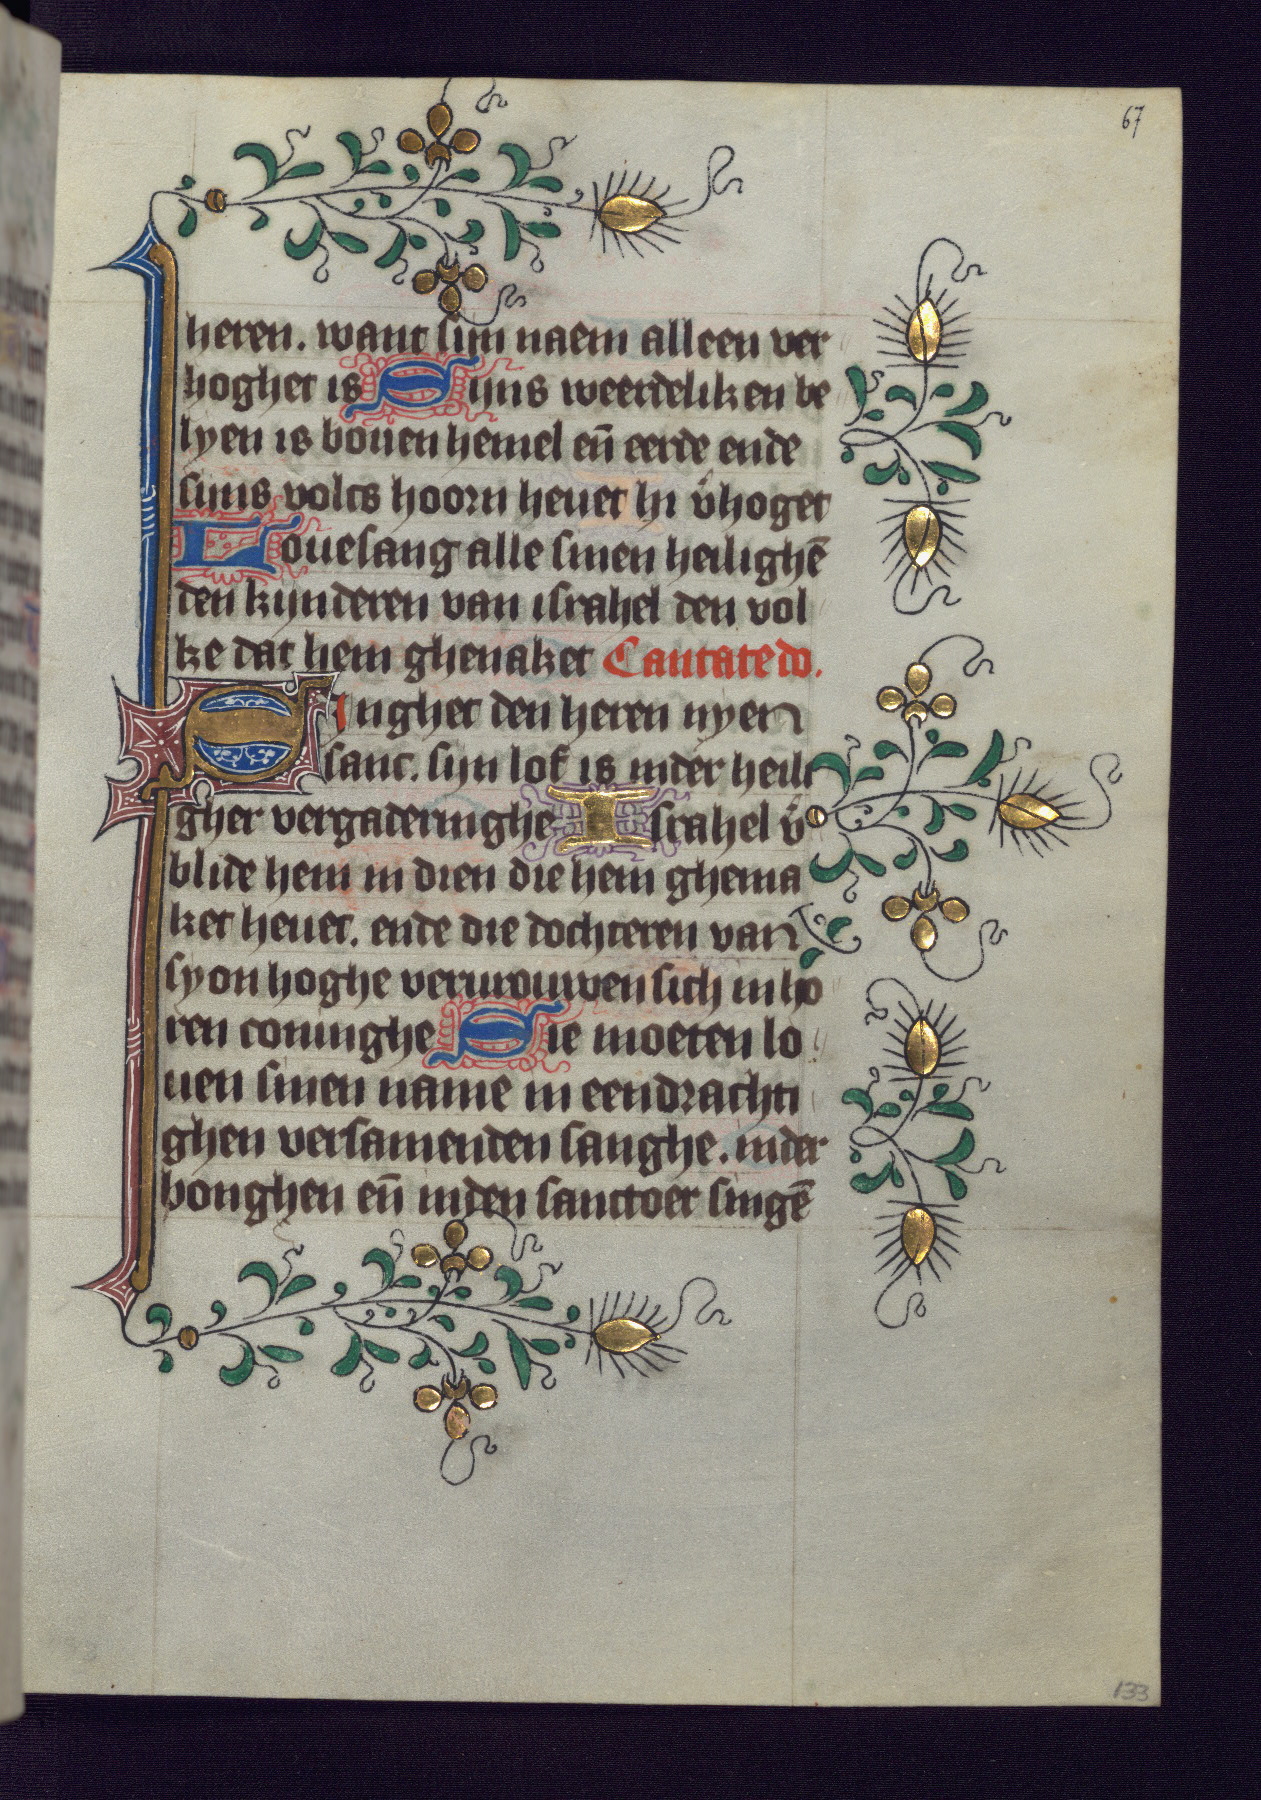 67
heren. want sijn naem alleen ver
hoghet is Sijns weerdeliken be
lyen is bouen hemel en̄ eerde ende
sijns volcs hoorn heuet hi v̕hoget
Louesang alle sinen heilighē
den kijnderen van israhel den vol
ke dat hem ghenaket Cantate do.
Singhet den heren nyen
sanc. sijn lof is inder heili
gher vergaderinghe Israhel v̕
blide hem in dien die hem ghema
ket heuet. ende die dochteren van
syon hoghe vervrouwen sich in ho
ren coninghe Sie moeten lo
uen sinen name in eendrachti
ghen versamenden sanghe. inder
bonghen en̄ inden sanctoer singē
133